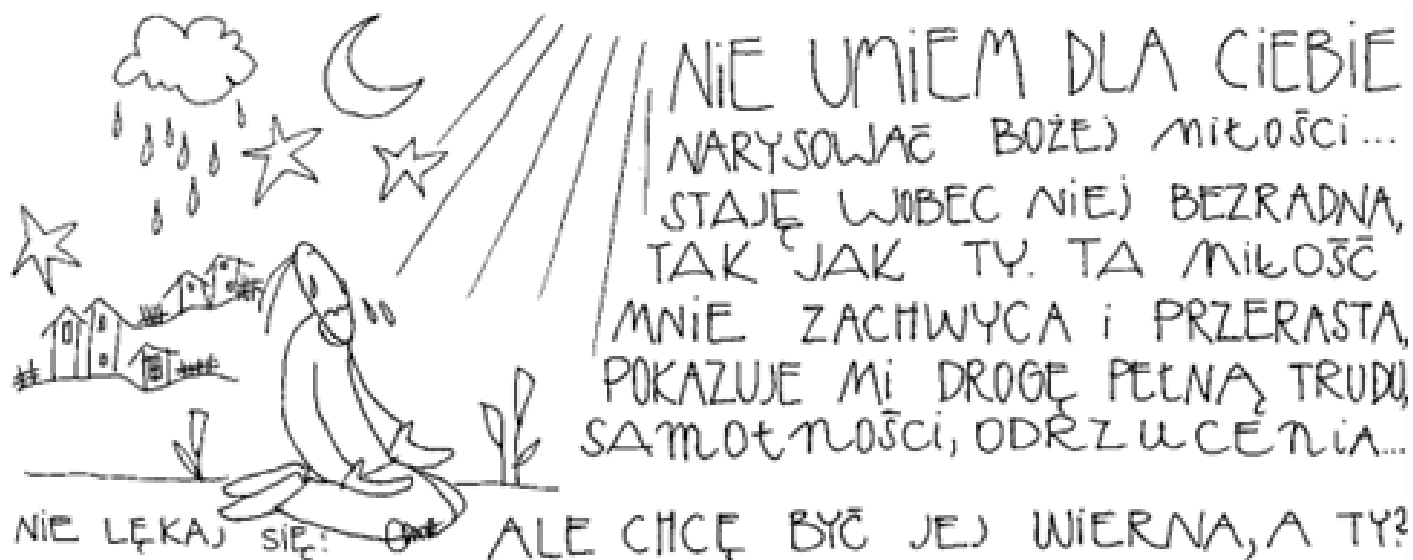 NiE UMiEM DLA CiEBiE
NARYSOWAĆ BOŻEJ MiŁOŚCi...
STAJĘ WOBEC NiEJ BEZRADNA,
TAK JAK TY. TA MiŁOŚĆ
MNiE ZACHWYCA i PRZERASTA,
POKAZUJE Mi DROGĘ PEŁNĄ TRUDU,
SAMOTNOŚCi, ODRZUCENiA...
NiE LĘKAJ SiĘ:
ALE CHCĘ BYĆ JEJ WiERNA, A TY?